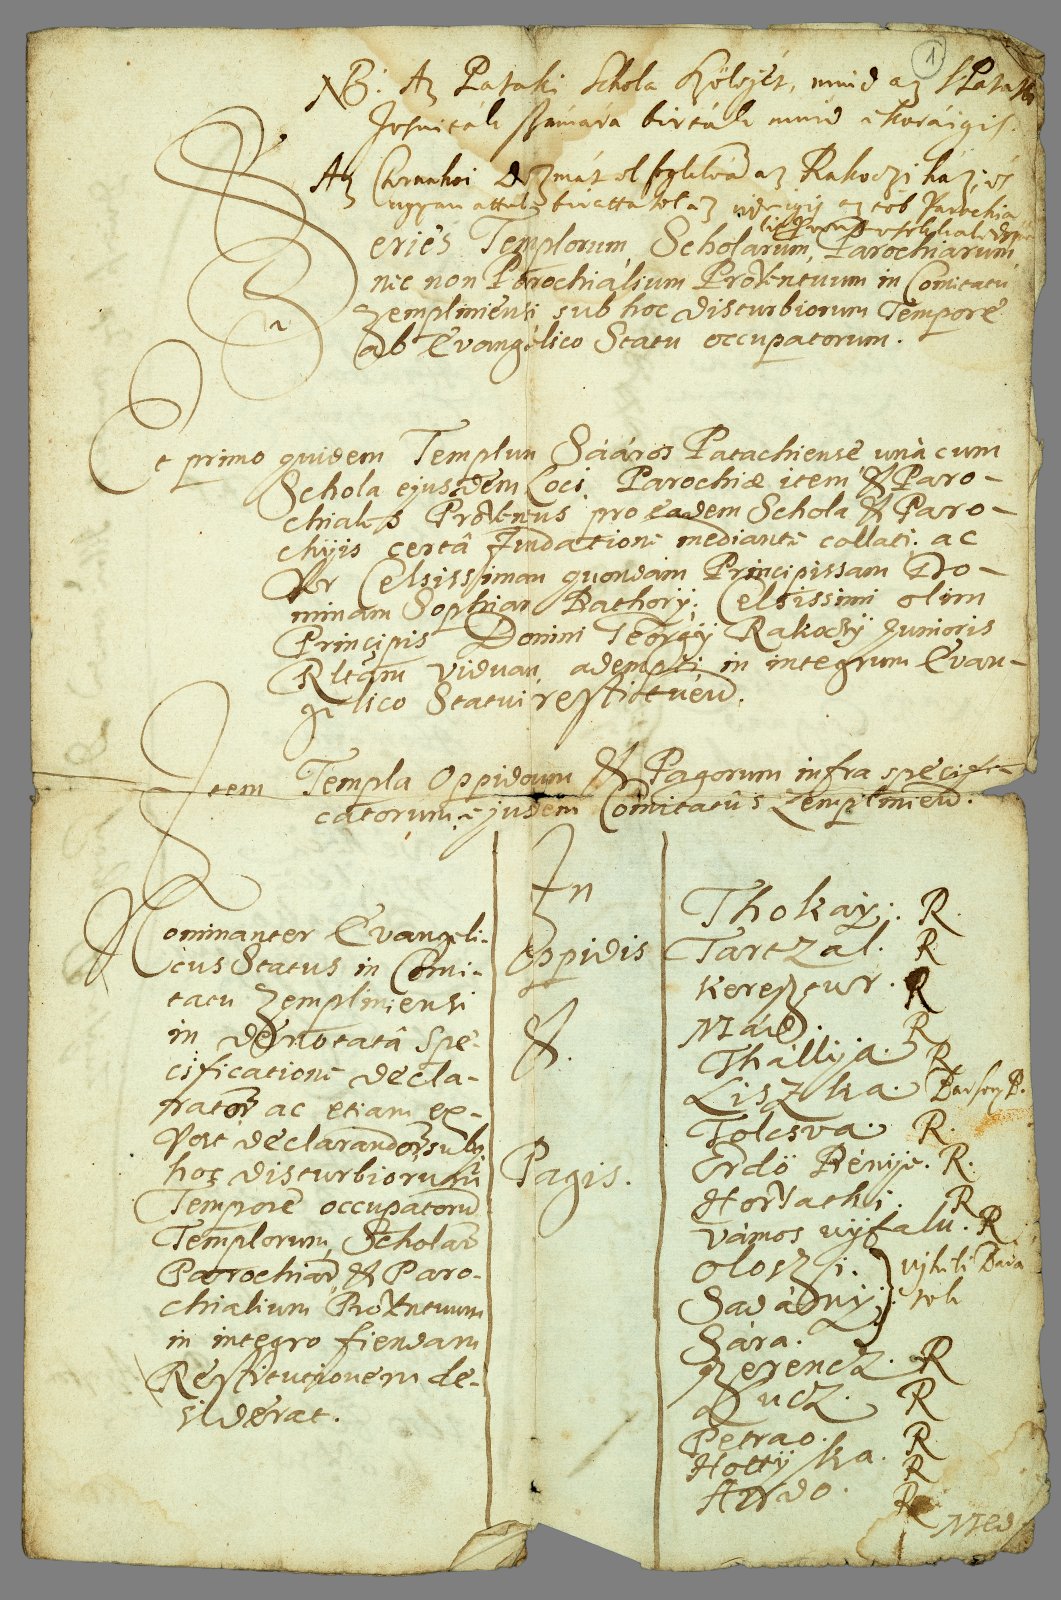 1
NB: Az Pataki Schola Hölgyét, mind az S Pataki
Jesuiták számára birták mind ekoráigis.
Az Dézmát el foglalvá az Rakoczi ház, és
ugyan attul
Series Templorum, Scholarum, Parochiarum,
nec non Parochialium Proventuum in Comitatu
Zempliniensi sub hoc disturbiorum Tempore
ab Evangelico Statu occupatorum.
Et primo quidem Templum Sááros Patachiense unà cum
Schola ejusdem Loci, Parochiæ item & Paro-
chiales Proventus pro eadem Schola & Paro-
chijs certâ Fundatione mediante collati, ac
Per Celsissimam quondam Principissam Do-
minam Sophiam Bathorÿ, Celsissimi olim
Principis Domini Georgÿ Rakoczÿ Junioris
Rltam Viduam, adempti in integrum Evan-
gelico Statui restituend.
Item Templa Oppidorum & Pagorum infra specifi-
catorum ejusdem Comitatûs Zemplinien.
Nominanter Evangeli-
cus Status in Comi-
tatu Zempliniensi
in denotatâ Spe-
cificatione decla-
rator ac etiam ex-
Post declarandor sub
hoc disturbiorum
Tempore occupatorū
Templorum, Scholar
Parochiar & Paro-
chialium Proventuum
in integro fiendam
Restitutionem de-
siderat.
In
Oppidis
&.
Pagis.
Thokaÿ. R.
Tartzal. R
Kereßtur. R
Mád. R
Thállÿa. R
Liszka. Barsony P.
Tolcsva. R.
Erdö Bénÿe. R.
Horvathi. R
Vámos uÿfalu. R
Oloszi.
Sadánÿ.
Sára.
ujheli Bara
tok
Szerencz. R
Lucz. R
Petrao. R
Hottÿka. R
Ardo. R
Med